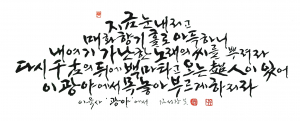 지금 눈 내리고
매화향기 홀로 아득하니
내 여기 가난한 노래의 씨를 뿌려라
다시 千古의 뒤에 백마 타고 오는 超人이 있어
이 광야에서 목놓아 부르게 하리라
이육사 광야에서